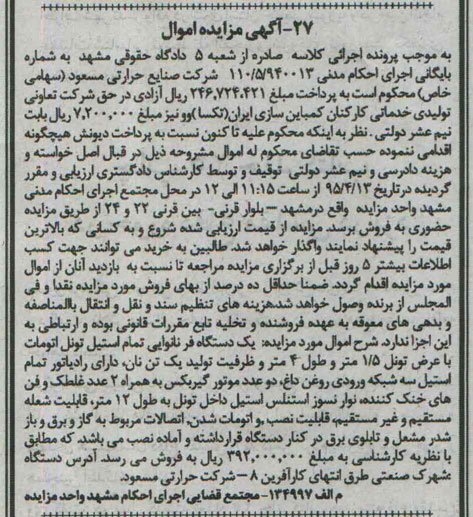 ۲۷-آگهی مزایده اموال
به موجب پرونده اجرائی کلاسه صادره از شعبه ۵ دادگاه حقوقی مشهد به شماره
بایگانی اجرای احکام مدنی ۱۱۰/۵/۹۴۰۰۱۳ شرکت صنایع حرارتی مسعود (سهامی
خاص) محکوم است به پرداخت مبلغ ۲۴۶,۷۲۴,۴۲۱ ریال آزادی در حق شرکت تعاونی
تولیدی خدماتی کارکنان کمباین سازی ایران(تکسا) وو نیز مبلغ ۷,۲۰۰,۰۰۰ ریال بابت
نیم عشر دولتی . نظر به اینکه محکوم علیه تا کنون نسبت به پرداخت دیونش هیچگونه
اقدامی ننموده حسب تقاضای محکوم له اموال مشروحه ذیل در قبال اصل خواسته و
هزینه دادرسی و نیم عشر دولتی توقیف و توسط کارشناس دادگستری ارزیابی و مقرر
گردیده در تاریخ ۹۵/۴/۱۳ از ساعت ۱۱:۱۵ الی ۱۲ در محل مجتمع اجرای احکام مدنی
مشهد واحد مزایده واقع در مشهد – بلوار قرنی- بین قرنی ۲۲ و ۲۴ از طریق مزایده
حضوری به فروش برسد. مزایده از قیمت ارزیابی شده شروع و به کسانی که بالاترین
قیمت را پیشنهاد نمایند واگذار خواهد شد. طالبین به خرید می توانند جهت کسب
اطلاعات بیشتر ۵ روز قبل از برگزاری مزایده مراجعه تا نسبت به بازدید آنان از اموال
مورد مزایده اقدام گردد. ضمنا حداقل ده درصد از بهای فروش مورد مزایده نقدا و فی
المجلس از برنده وصول خواهد شد.هزینه های تنظیم سند و نقل و انتقال بالمناصفه
و بدهی های معوقه به عهده فروشنده و تخلیه تابع مقررات قانونی بوده و ارتباطی به
این اجزا ندارد. شرح اموال مورد مزایده: یک دستگاه فر نانوایی تمام استیل تونل اتومات
با عرض تونل ۱/۵ متر و طول ۴ متر و ظرفیت تولید یک تن نان، دارای رادیاتور تمام
استیل سه شبکه ورودی روغن داغ، دو عدد موتور گیربکس به همراه ۲ عدد غلطک و فن
های خنک کننده، نوار نسوز استنلس استیل داخل تونل به طول ۱۲ متر، قابلیت شعله
مستقیم و غیر مستقیم، قابلیت نصب ,و اتومات شدن, اتصالات مربوط به گاز و برق و باز
شدر مشعل و تابلوی برق در کنار دستگاه قرار داشته و آماده نصب می باشد. که مطابق
با نظریه کارشناسی به مبلغ ۳۹۲,۰۰۰,۰۰۰ ریال به فروش می رسد. آدرس دستگاه
:شهرک صنعتی طرق انتهای کارآفرین ۸ – شرکت حرارتی مسعود.
م الف ۱۳۴۹۹۷- مجتمع قضایی اجرای احکام مشهد واحد مزایده